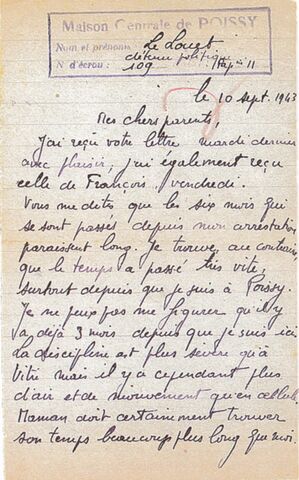 Maison Centrale de POISSY
Nom et prénoms Le Louet
détenu politique
N° d'écrou: 109
le 10 sept. 1943
Mes chers parents,
J'ai reçu votre lettre mardi dernier
avec plaisir, j'ai également reçu
celle de François vendredi.
Vous me dites que les six mois qui
se sont passés depuis mon arrestation
paraissent long. Je trouve, au contraire
que le temps a passé très vite,
surtout depuis que je suis à Poissy.
Je ne peux pas me figurer qu'il y
a déjà 3 mois depuis que je suis ici
la discipline est plus sévère qu'à
Vitré mais il y a cependant plus
d'air et de mouvement qu'en cellule
Maman doit certainement trouver
son temps beaucoup plus long que moi.